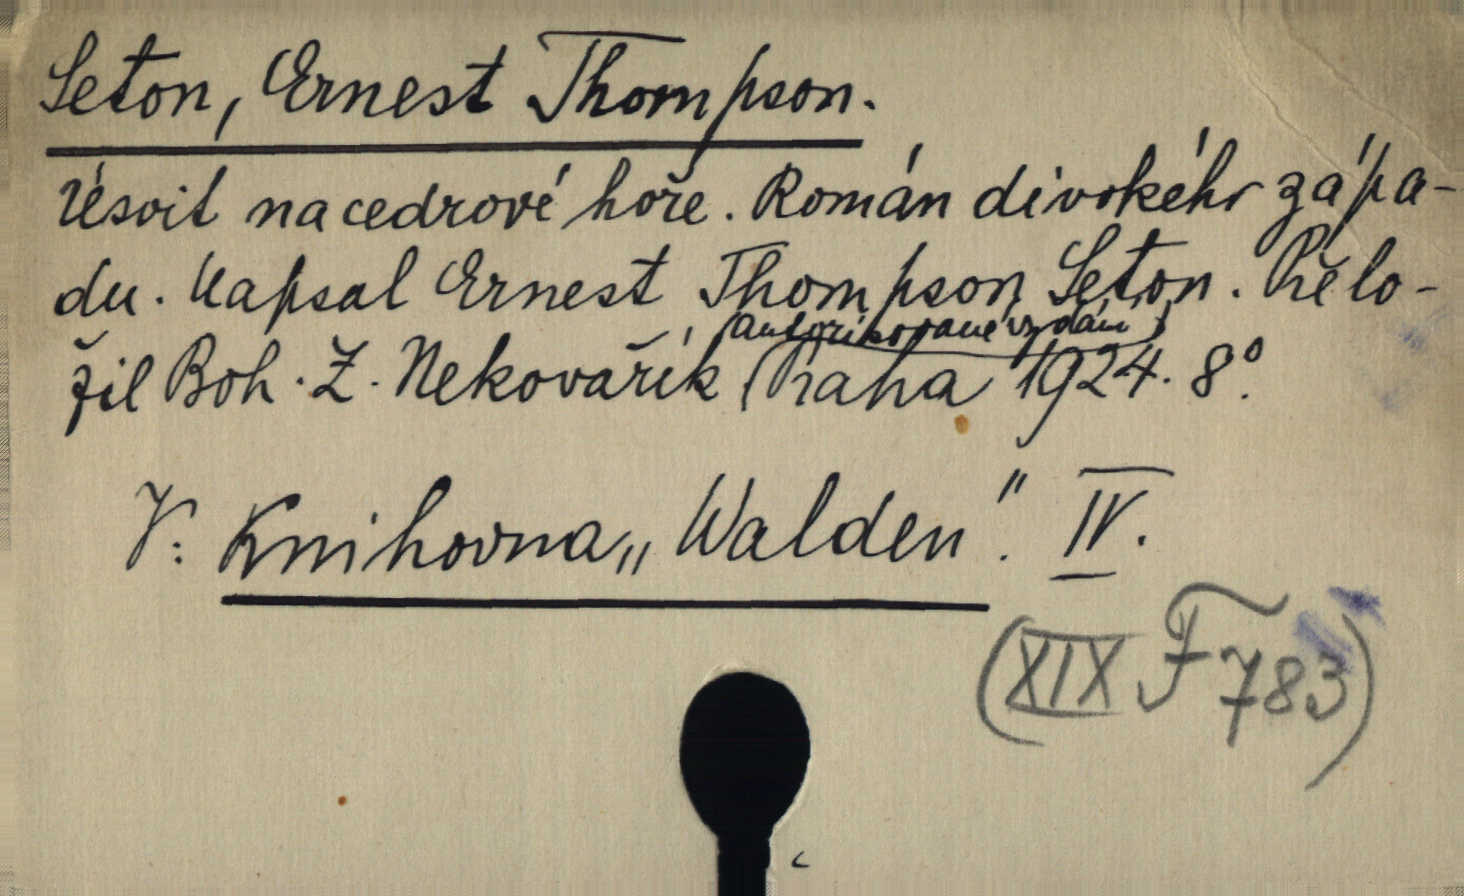 Seton, Ernest Thompson.
Úsvit na cedrové hoře. Román divokého zápa-
du. Napsal Ernest Thompson Seton. Přelo-
(autorisované vydání)
žil Boh. Z. Nekovařík, Praha 1924. 8°.
V: Knihovna „Walden". IV.
(XIX F 783)